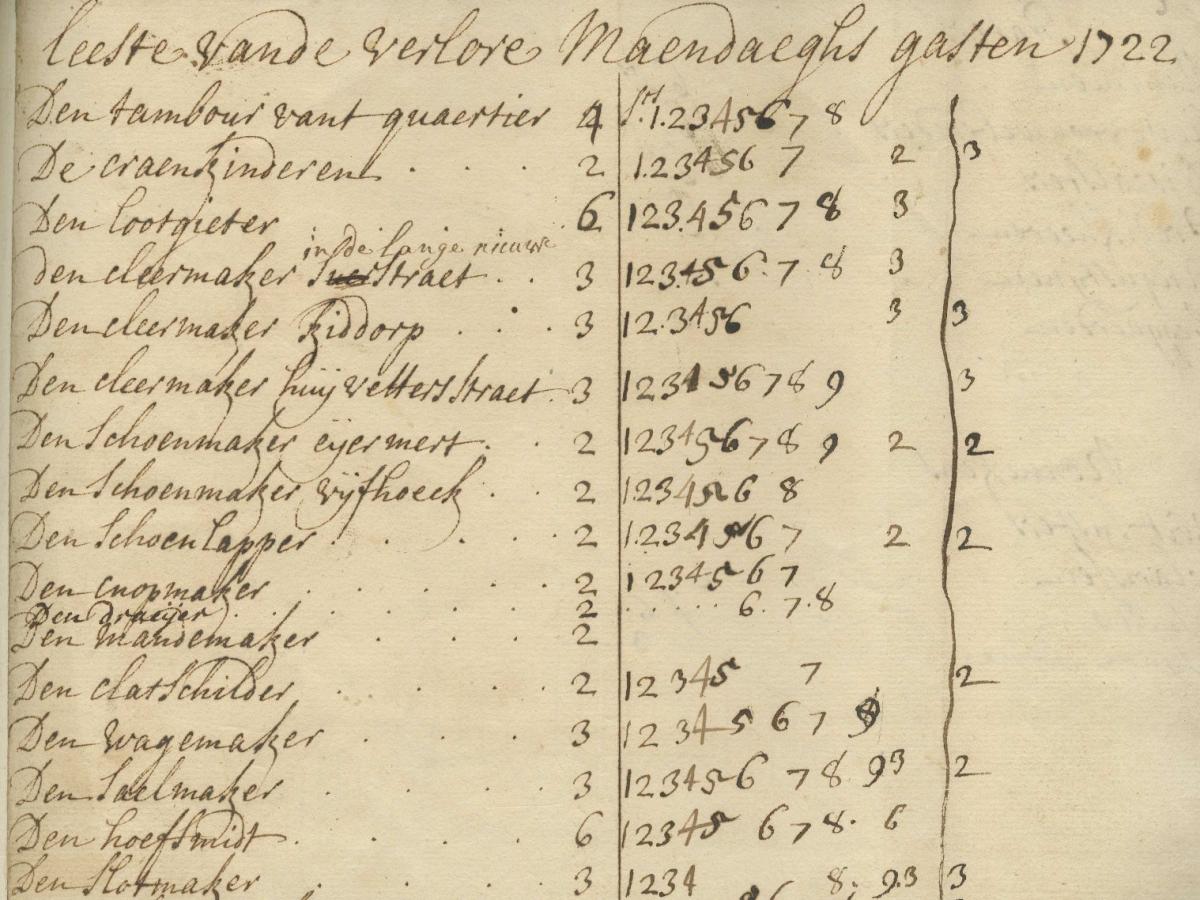 leeste vande verlore Maendaeghs gasten 1722
Den tambour vant quaertier 4 1.2 3 4 5 6 7 8
De craenkinderen . . . 2 1.2 3 4 5 6 7 2 3
Den lootgieter 6 1 2 3.4 5 6 7 8 3
in de lange nieuwe
den cleermaker straet . . 3 1 2 3.4 5 6. 7. 8 3
Den cleermaker Kiddorp . . . 3 1 2.3 4 5 6 3 3
Den cleermaker huijvettersstraet . 3 1 2 3 4 5 6 7 8 9 3
Den Schoenmaker eijermert . . 2 1 2 3 4 5 6 7 8 9 2 2
Den Schoenmaker vijfhoeck . . 2 1.2 3 4 5 6 8
Den Schoenlapper . . . . 2 1.2 3 4 5 6 7 2 2
Den cnopmaker . . . . . 2 1 2 3 4 5 6 7
Den draeijer . . . . . 2 . . . . . 6. 7. 8
Den mandemaker . . . . 2
Den clatschilder . . . . 2 1 2 3 4 5 7 2
Den wagemaker . . . . 3 1 2 3 4 5 6 7
Den Saelmaker . . . . 3 1 2 3 4 5 6 7 8 9 3 2
Den hoefsmidt . . . . 6 1 2 3 4 5 6 7 8. 6
Den Slotmaker . . . . 3 1 2 3 4 8. 9.3 3